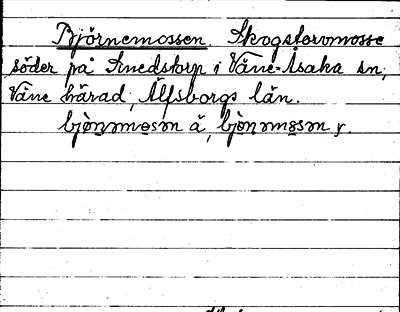 Björnemossen. Skogstorvmosse
söder på Smedstorp i Väne-Åsaka sn,
Väne härad, Älfsborgs län.
bjönnmosən ä, bjönnmosən y.